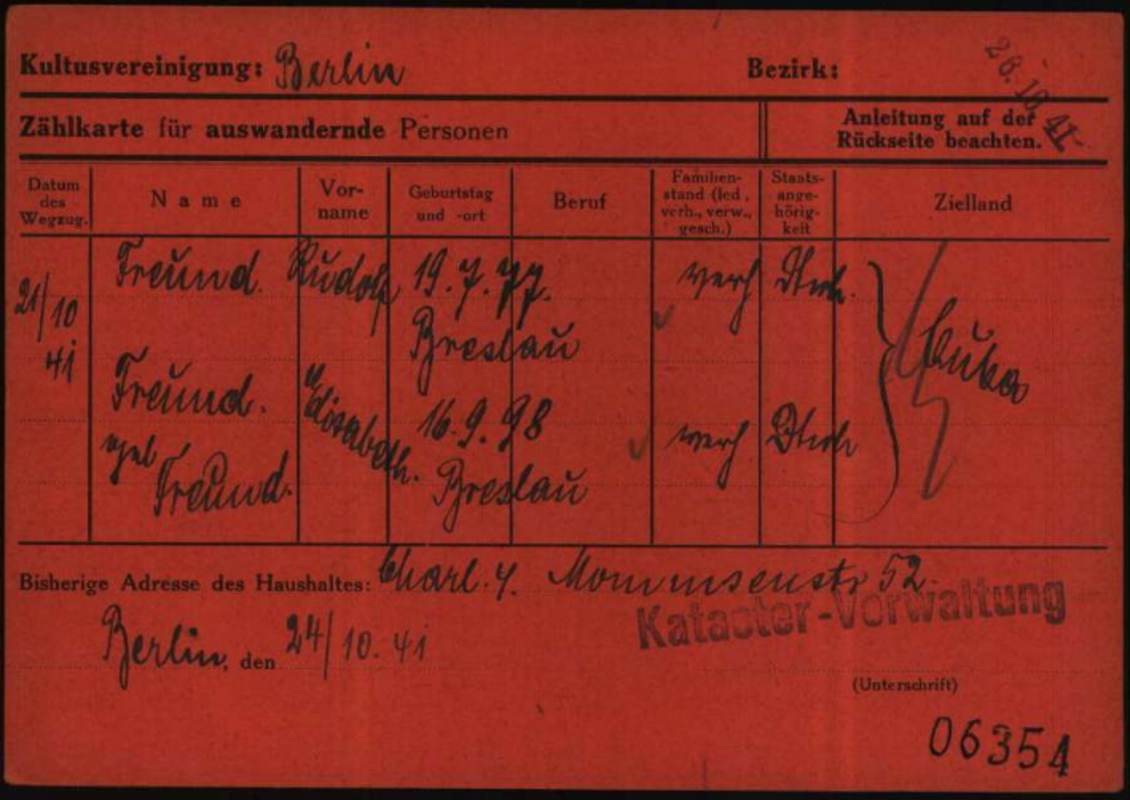 Kultusvereinigung: Berlin Bezirk:
28.10.41
Zählkarte für auswandernde Personen
Anleitung auf der
Rückseite beachten.
Datum
des
Wegzug.
Name
Vor-
name
Geburtstag
und -ort
Beruf
Familien-
stand (led.,
verh., verw.,
gesch.)
Staats-
ange-
hörig-
keit
Zielland
21/10
41
Freund. Rudolf 19.7.77.
Breslau
verh Dtsch.
Cuba
Freund.
geb
Freund.
Elisabeth.
16.9.98
Breslau
verh Dtsch
Bisherige Adresse des Haushaltes: Charl. 4. Mommsenstr 52.
Kataster-Verwaltung
Berlin, den 24/10.41
(Unterschrift)
06354